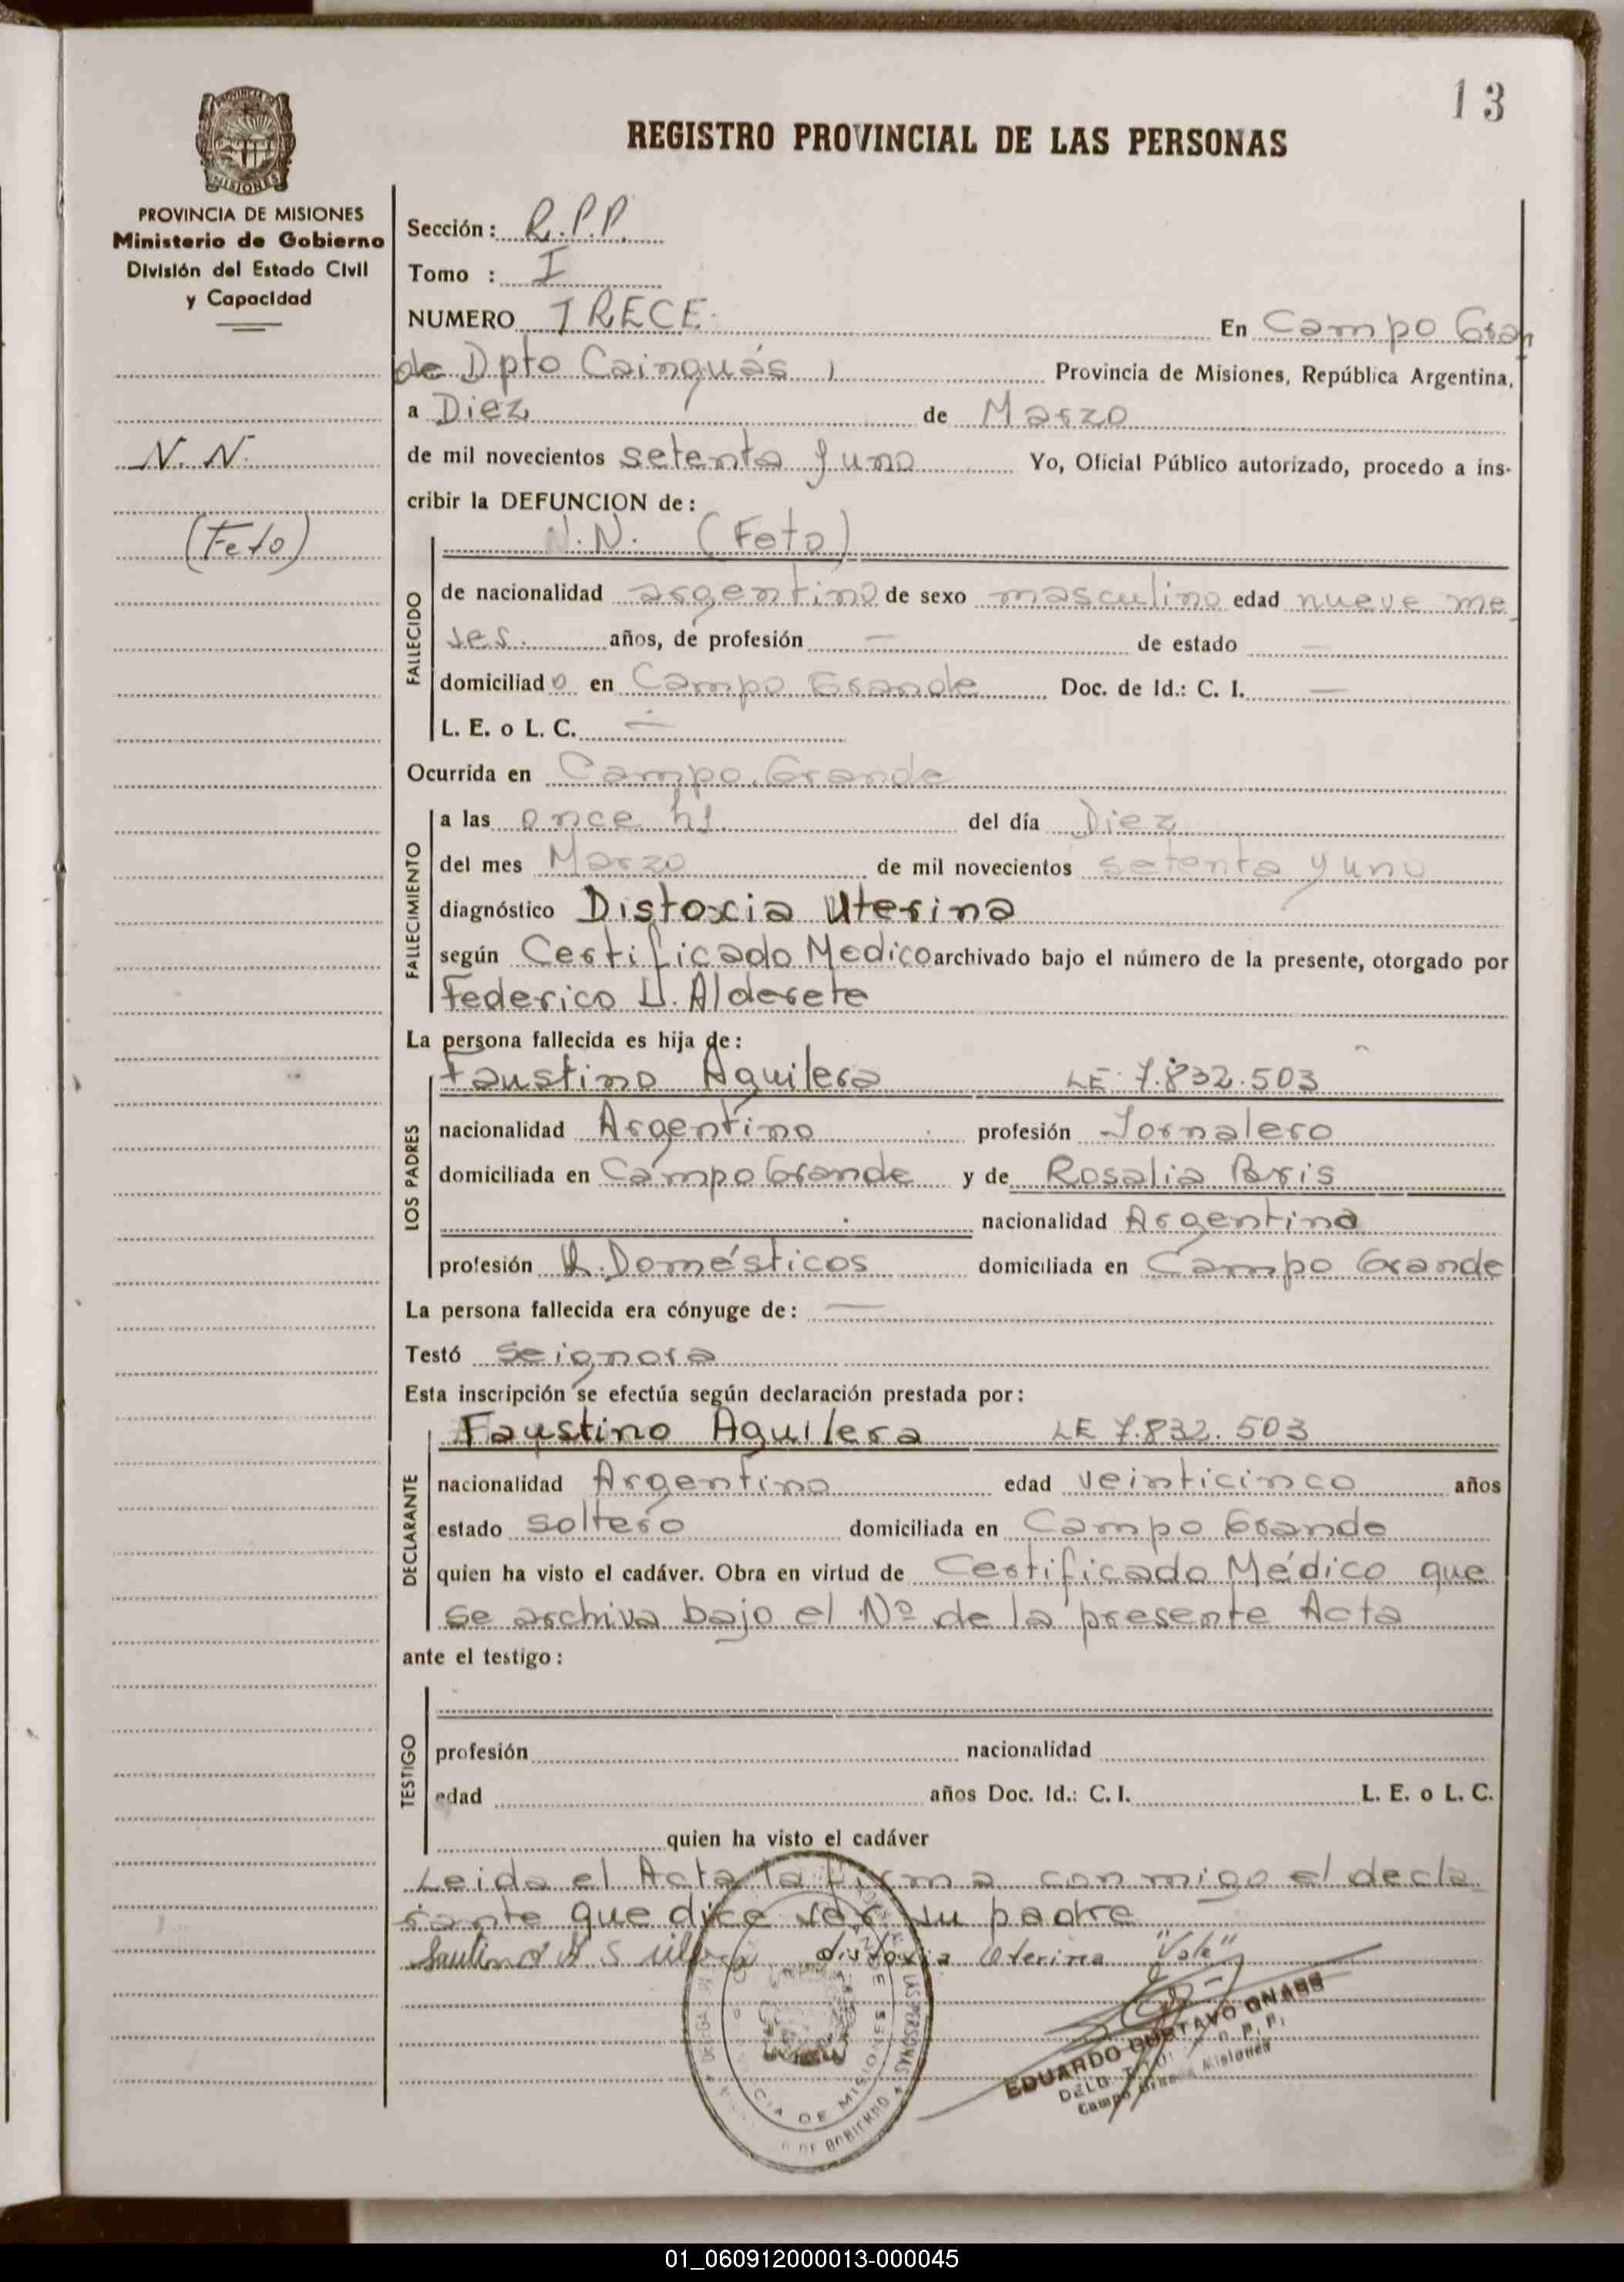 13
PROVINCIA DE
MISIONES
REGISTRO PROVINCIAL DE LAS PERSONAS
PROVINCIA DE MISIONES
Ministerio de Gobierno
División del Estado Civil
y Capacidad
N. N.
(Feto)
Sección: R.P.P.
Tomo : I
NUMERO TRECE. En Campo Gran
de Dpto Cainguás, Provincia de Misiones, República Argentina,
a Diez de Marzo
de mil novecientos setenta y uno Yo, Oficial Público autorizado, procedo a ins-
cribir la DEFUNCION de:
N.N. (Feto)
FALLECIDO
de nacionalidad argentino de sexo masculino edad nueve me
ses. años, de profesión — de estado —
domiciliado en Campo Grande Doc. de Id.: C. I. —
L. E. o L. C. —
Ocurrida en Campo Grande
FALLECIMIENTO
a las once hs. del día Diez
del mes Marzo de mil novecientos setenta y uno
diagnóstico Distoxia Uterina
según Certificado Medico archivado bajo el número de la presente, otorgado por
Federico Alderete
La persona fallecida es hija de:
LOS PADRES
Faustino Aguilera LE 7.832.503
nacionalidad Argentino profesión Jornalero
domiciliada en Campo Grande y de Rosalia Boris
nacionalidad Argentina
profesión Q. Domésticos domiciliada en Campo Grande
La persona fallecida era cónyuge de: —
Testó se ignora
Esta inscripción se efectúa según declaración prestada por:
DECLARANTE
Faustino Aguilera LE 7.832.503
nacionalidad Argentino edad veinticinco años
estado soltero domiciliada en Campo Grande
quien ha visto el cadáver. Obra en virtud de Certificado Médico que
se archiva bajo el Nº de la presente Acta
ante el testigo:
TESTIGO
profesión nacionalidad
edad años Doc. Id.: C. I. L. E. o L. C.
quien ha visto el cadáver
Leida el Acta la firma conmigo el decla
rante que dice ser su padre
distoxia Uterina "Vale"
LAS PERSONAS
CIA DE MISIONES
DE GOBIERNO
EDUARDO GUSTAVO GNASS
Misiones
01_060912000013-000045